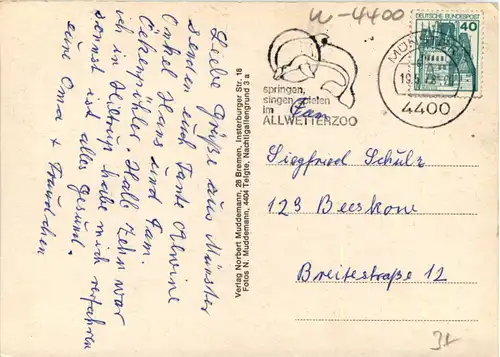 W-4400
DEUTSCHE BUNDESPOST
40
4400
springen,
singen, spielen
im
ALLWETTERZOO
Fam.
Siegfried Schulz
123 Beeskow
Breitestraße 12
Liebe Grüße aus Münster
senden euch Tante
Onkel Hans und Fam.
Halb zehn war
ich in Hiltrup habe mich verfahren
sonst ist alles gesund.
eure Oma + Traudchen
Verlag Norbert Muddemann, 28 Bremen, Insterburger Str. 18
Fotos N. Muddemann, 4404 Telgte, Nachtigallengrund 3 a